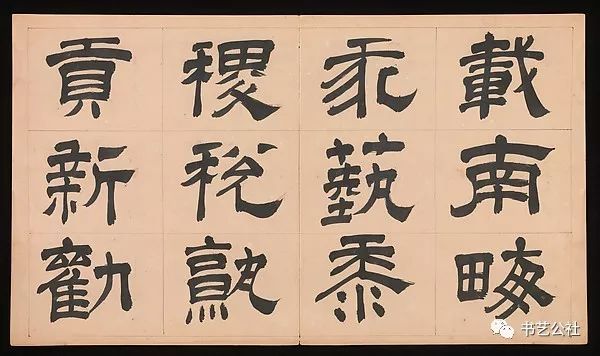 載南畮
我蓺黍
稷稅熟
貢新勸
书艺公社